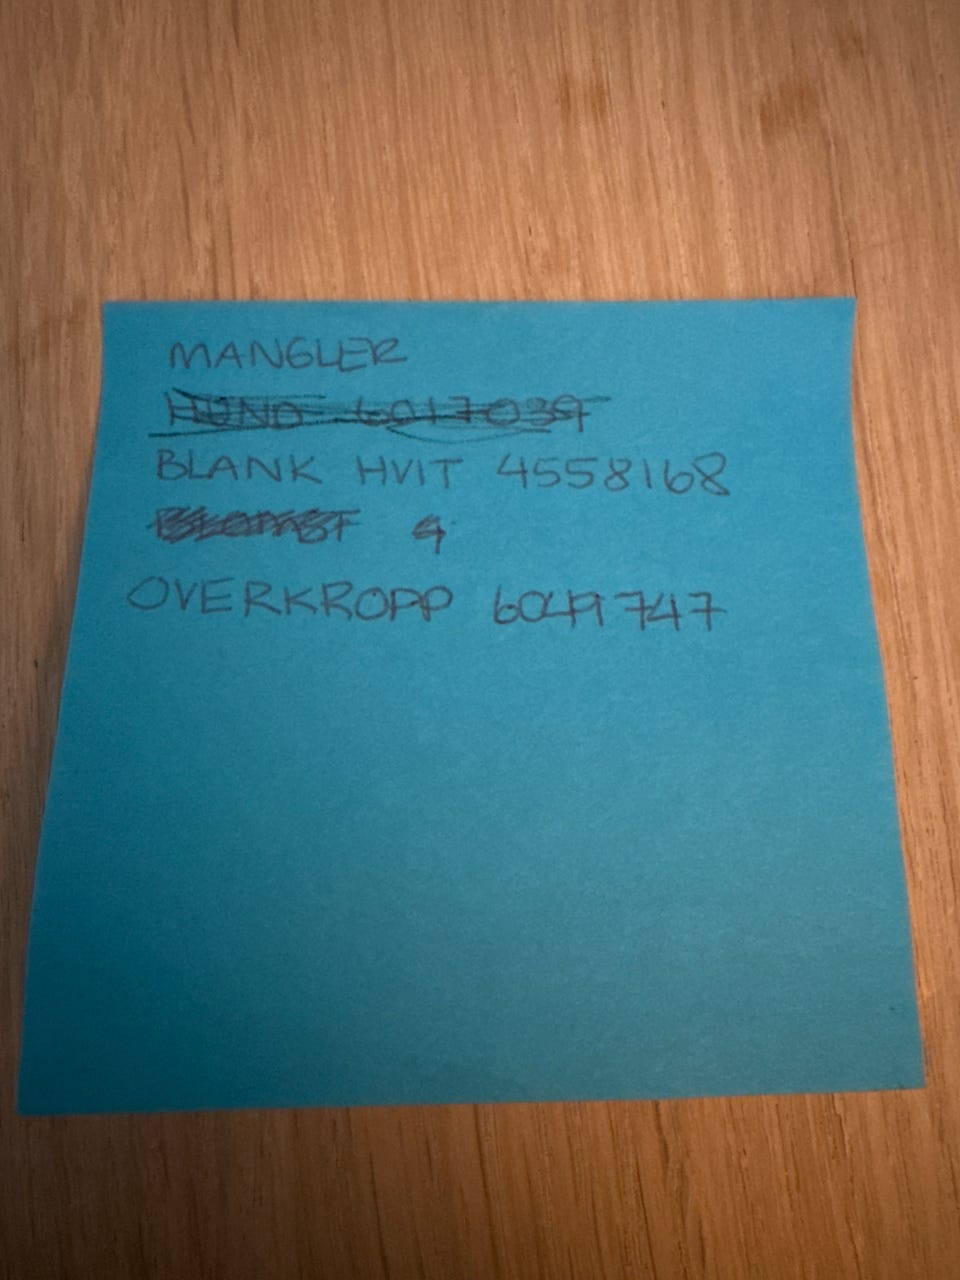 MANGLER
HUND 6017039
BLANK HVIT 4558168
4
OVERKROPP 6049747